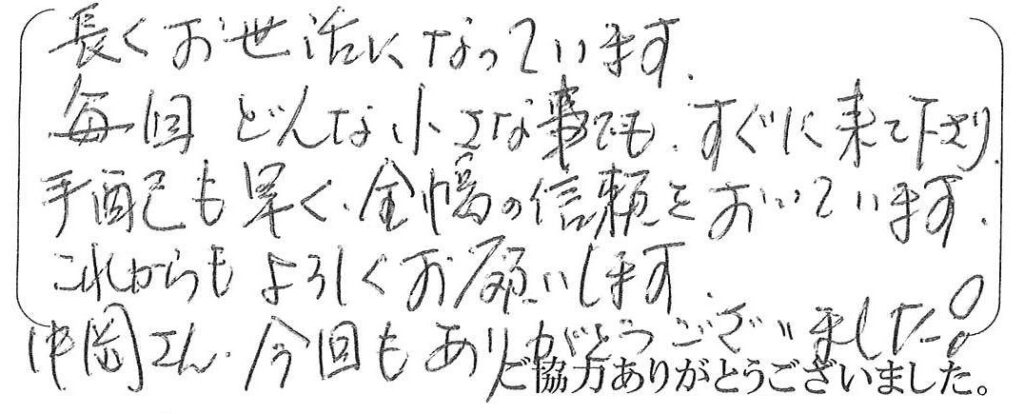 長くお世話になっています.
毎回 どんな小さな事でも、すぐに来て下さり、
手配も早く、全幅の信頼をおいています.
これからもよろしくお願いします.
中岡さん、今回もありがとうございました!!
ご協力ありがとうございました。